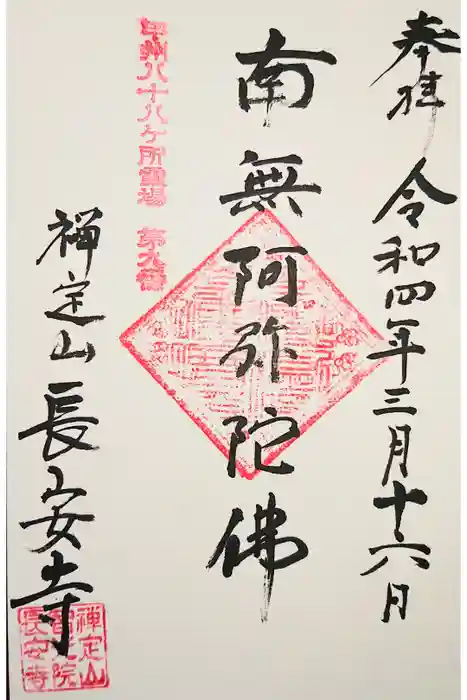 奉拝 令和四年三月十六日
南無阿弥陀佛
甲州八十八ケ所霊場 第九番
禅定山 長安寺
禅定山
院
長安寺